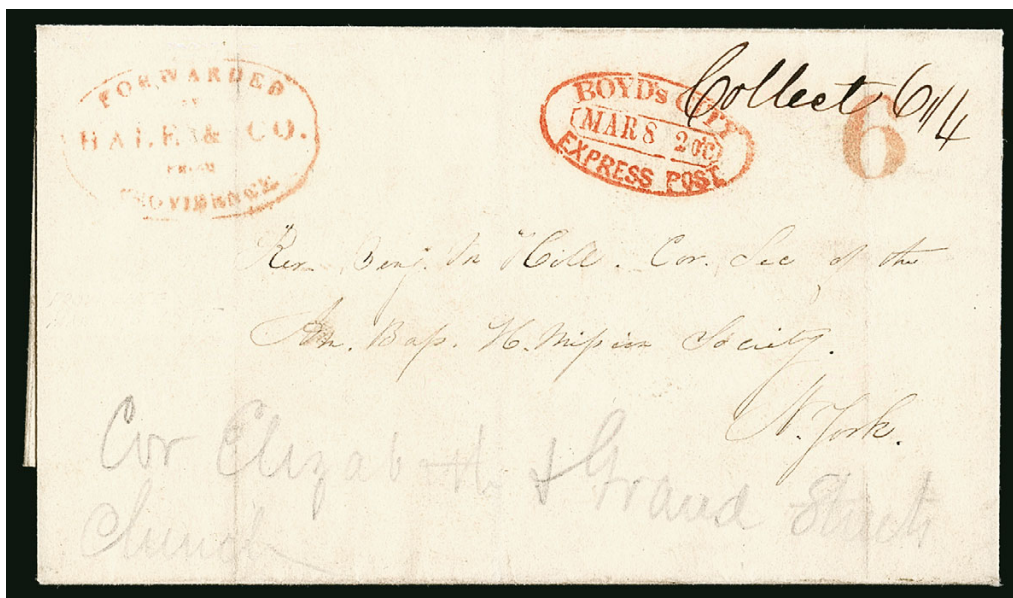 FORWARDED
BY
HALE & CO.
FROM
PROVIDENCE
BOYD's CITY
MAR 8 2 o'C
EXPRESS POST
Collect 6 1/4
6
Rev. Benj. M Hill. Cor. Sec of the
Am. Bap. H. Mission Society.
N. York.
Cor Elizabeth & Grand Streets
Church